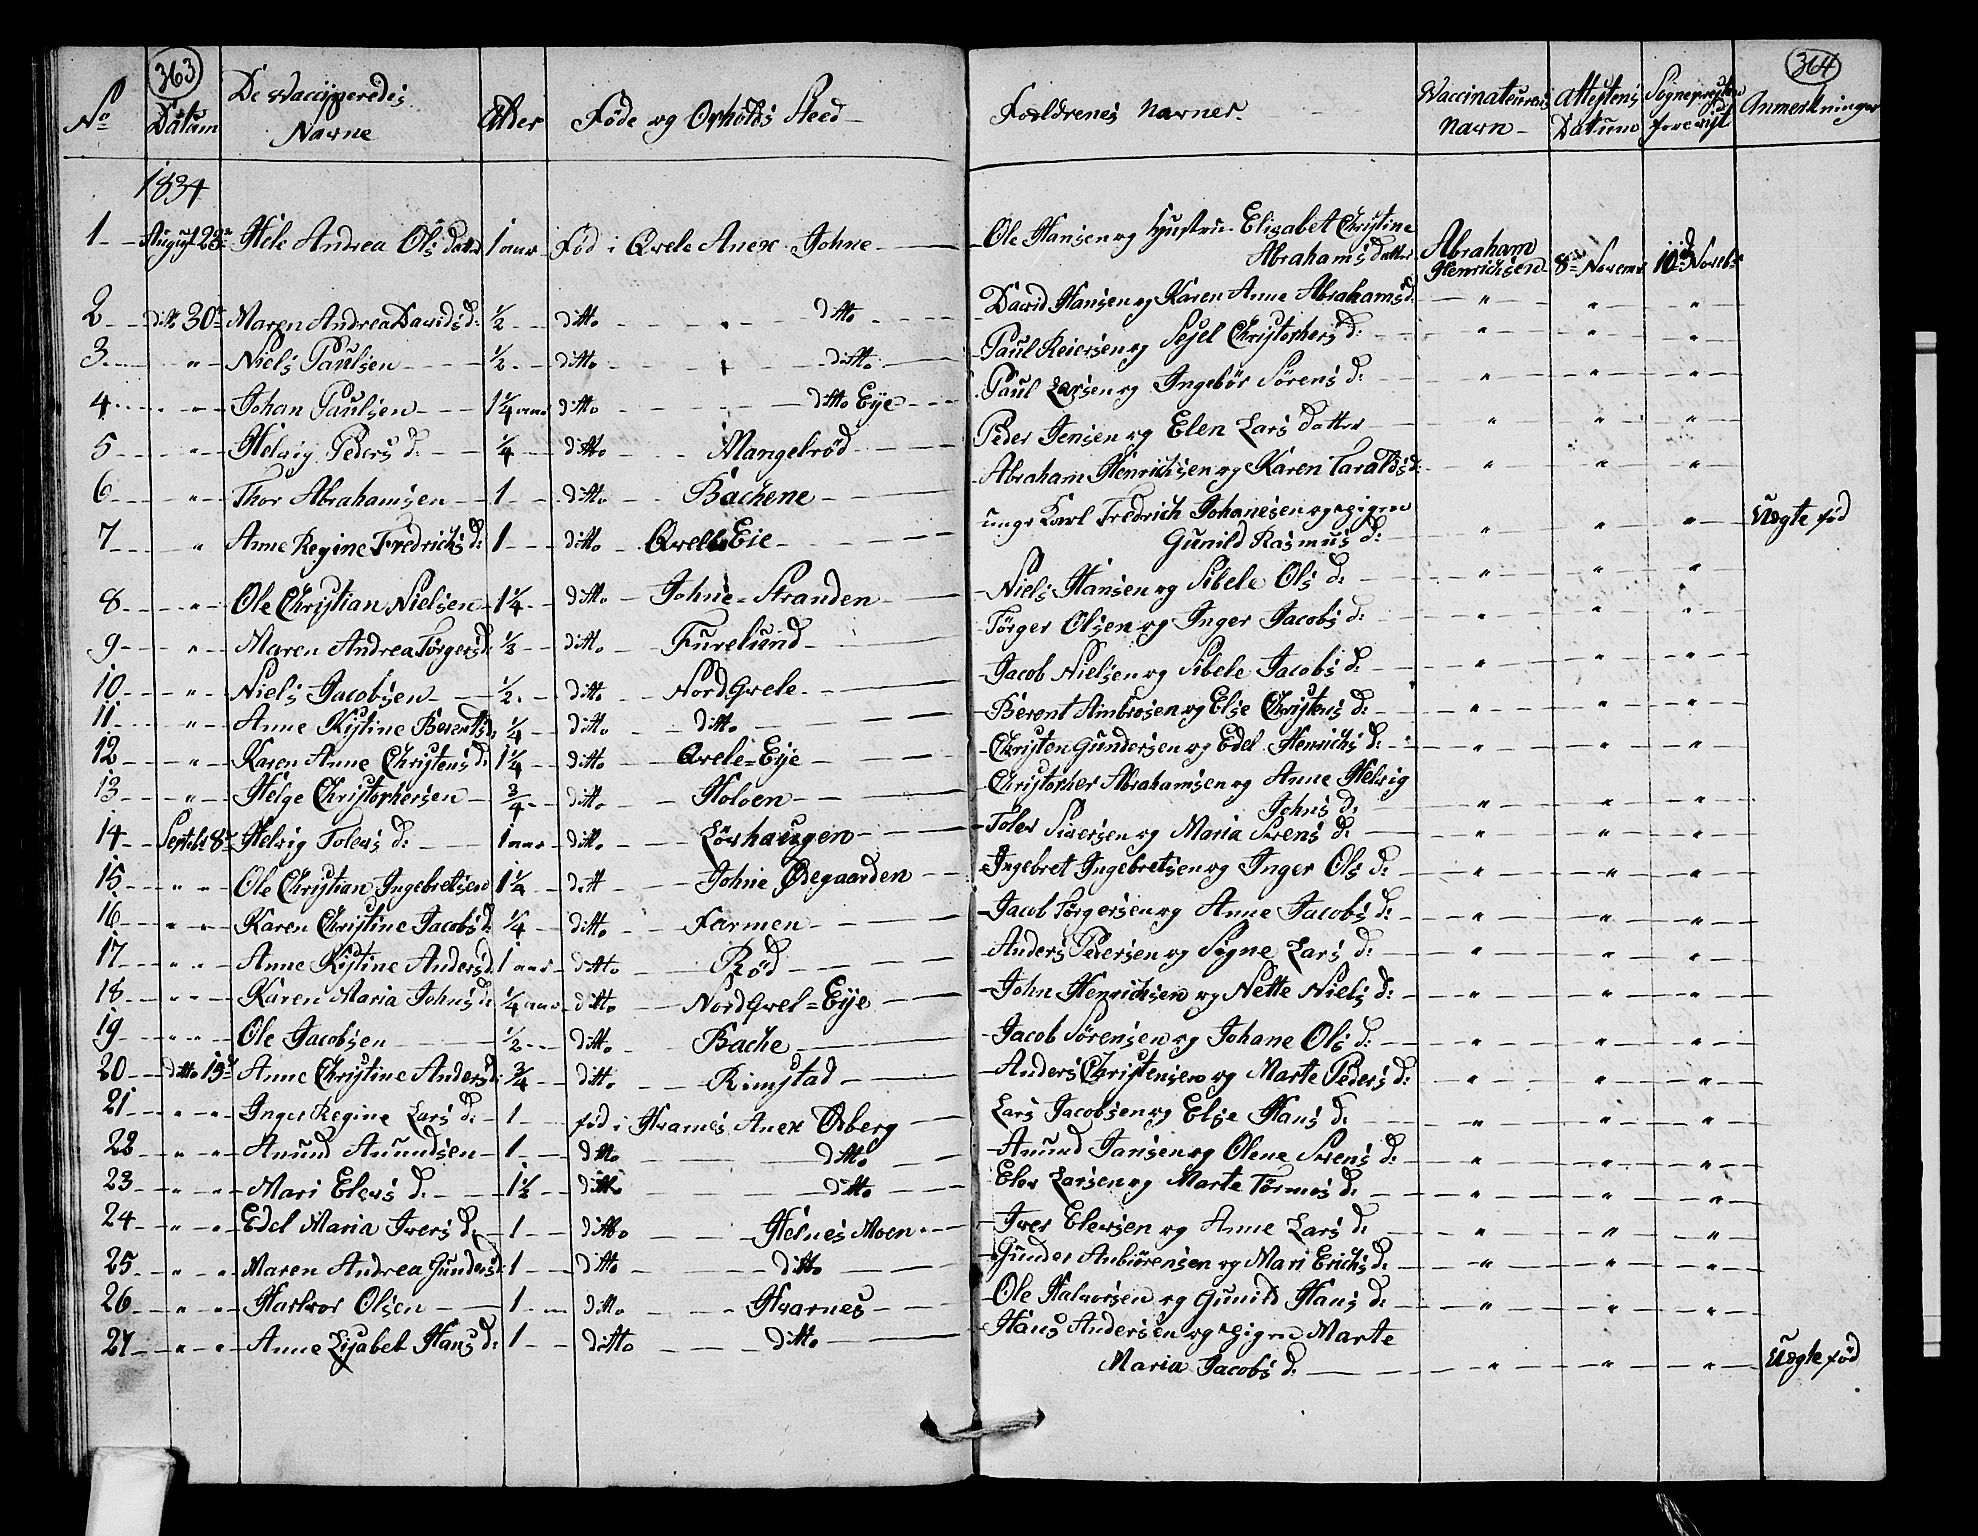 363
No Datum De Vaccineredes Navne Alder Føde og Opholds Sted
1834
1 August 23de Hele Andrea Ols datter 1 aar Fød i Qvele Anex Johne
2 ditto 30te Maren Andrea Davids d: 1/2 ditto ditto
3 " Niels Paulsen 1/2 ditto ditto
4 " Johan Paulsen 1 1/4 aar ditto ditto Eÿe
5 " Helvig Peders d: 1/4 ditto Mangelrød
6 " Thor Abrahamsen 1 ditto Bachene
7 " Anne Regine Fredrichs d: 1 ditto Qvelle Eie
8 " Ole Christian Nielsen 1 1/4 ditto Johne=Stranden
9 " Maren Andrea Törgers d: 1/2 ditto Furelund
10 " Niels Jacobsen 1/2 ditto Nord Qvele
11 " Anne Kistine Berents d: 1/4 ditto ditto
12 " Karen Anne Christens d: 1 1/4 ditto Qvele=Eÿe
13 " Helge Christophersen 3/4 ditto Holven
14 Septbr 8de Helvig Tolevs d: 1 aar ditto Lövhaugen
15 " " Ole Christian Ingebretsen 1 1/2 ditt Johne Ødegaarden
16 " " Karen Christine Jacobs d: 1/4 ditto Farmen
17 " " Anne Kistine Anders d. 1 aar ditto Rød
18 " " Karen Maria Johns d: 1/4 aar ditto Nord Qvel=Eÿe
19 " " Ole Jacobsen 1/2 ditto Bache
20 ditto 15de Anne Christine Anders d: 3/4 ditto Rimstad
21 " " Inger Regine Lars d: 1 fød i Hvarnes Anex Odberg
22 " " Anund Anundsen 1 ditto ditto
23 " " Mari Elevs d: 1 1/2 ditto ditto
24 " " Edel Maria Ivers d: 1 ditto Helnes Moen
25 " " Maren Andrea Gunders d 1 ditto ditto
26 " " Harlvor Olsen 1 ditto Hvarnes
27 " " Anne Lisabet Hans d: 1 ditto ditto
364
Forldrenes Navner Vaccinateurens Navn Attestens Datum Anmerkninger
Ole Hansen og Hustrue Elisabet Christine
Abrahams datter Abraham Henrichsen 8de Novemr 10de Novebr
David Hansen og Karen Anne Abrahams d. " " "
Paul Reiersen og Sejel Christophers d: " " "
Paul Larsen og Ingebör Sörens d: " " "
Peder Jensen og Elen Lars datter " " "
Abraham Henrichsen og Karen Taralds d: " " "
unge Karl Fredrich Johanesen og pigen
Gunild Rasmus d: " " " Uægte fød
Niels Hansen og Sibele Ols d: " " "
Törger Olsen og Inger Jacobs d: " " "
Jacob Nielsen og Sibele Jacobs d: " " "
Berent Ambrosen og Else Christens d: " " "
Christen Gundersen og Edel Henrichs d: " " "
Christopher Abrahamsen og Anne Helvig
Johns d: " " "
Tolev Siversen og Maria Svens d: " " "
Ingebret Ingebretsen og Inger Ols d: " " "
Jacob Törgersen og Anne Jacobs d: " " "
Anders Pedersen og Signe Lars d: " " "
John Henrichsen og Nette Niels d: " " "
Jacob Sörensen og Johane Ols d: " " "
Anders Christensen og Marte Peders d: " " "
Lars Jacobsen og Else Hans d: " " "
Anund Jansen og Olene Svens d: " " "
Elev Larsen og Marte Törmos d: " " "
Iver Elevsen og Anne Lars d: " " "
Gunder Anbiörensen og Mari Erichs d: " " "
Ole Halvorsen og Gunild Hans d: " " "
Hans Andersen og pigen Marte
Maria Jacobs d: " " " Uægte fød